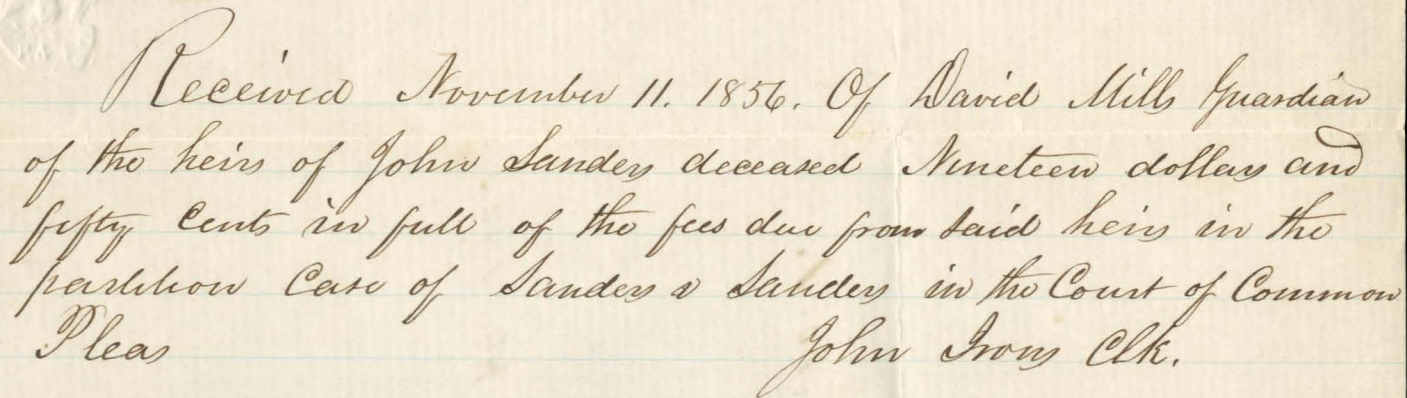 Received November 11. 1856. Of David Mills Guardian
of the heirs of John Sanders deceased Nineteen dollars and
fifty Cents in full of the fees due from said heirs in the
partition Case of Sanders v Sanders in the Court of Common
Pleas John Irons Clk.